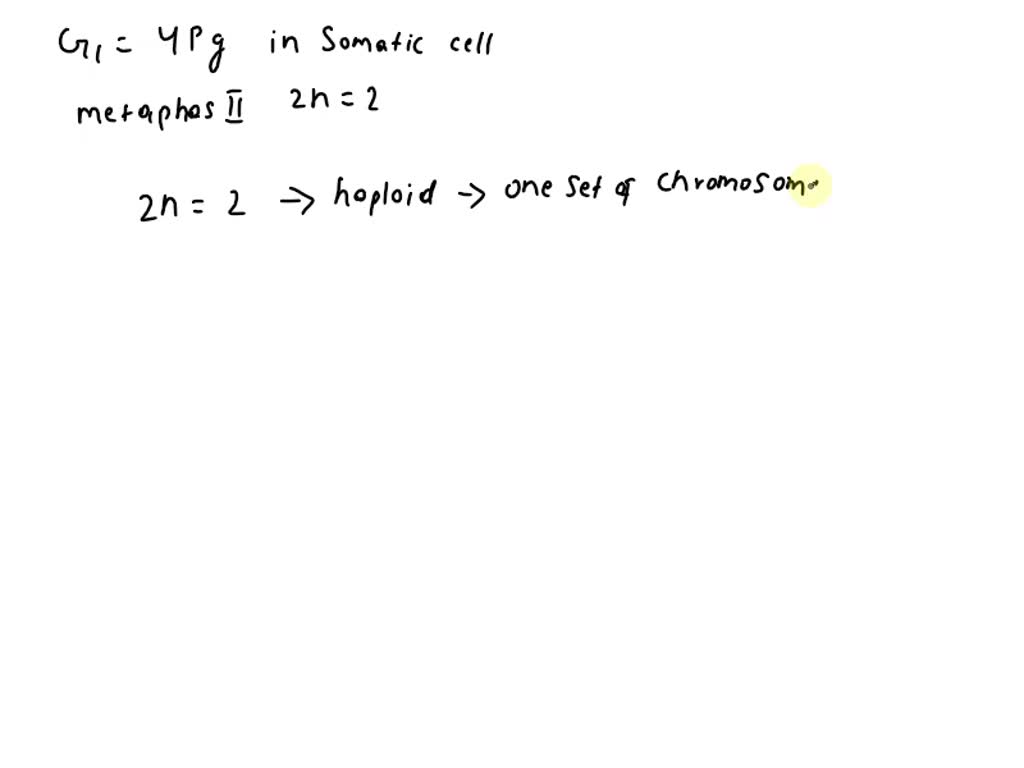 G1 = 4Pg in Somatic cell
metaphas II 2n = 2
2n = 2 → haploid → one set of chromosom